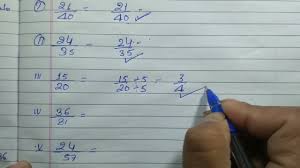 (i) 21/40 = 21/40 ✓
(ii) 24/35 = 24/35 ✓
iii 15/20 = 15÷5/20÷5 = 3/4 ✓
iv 36/81 =
v 24/57 =